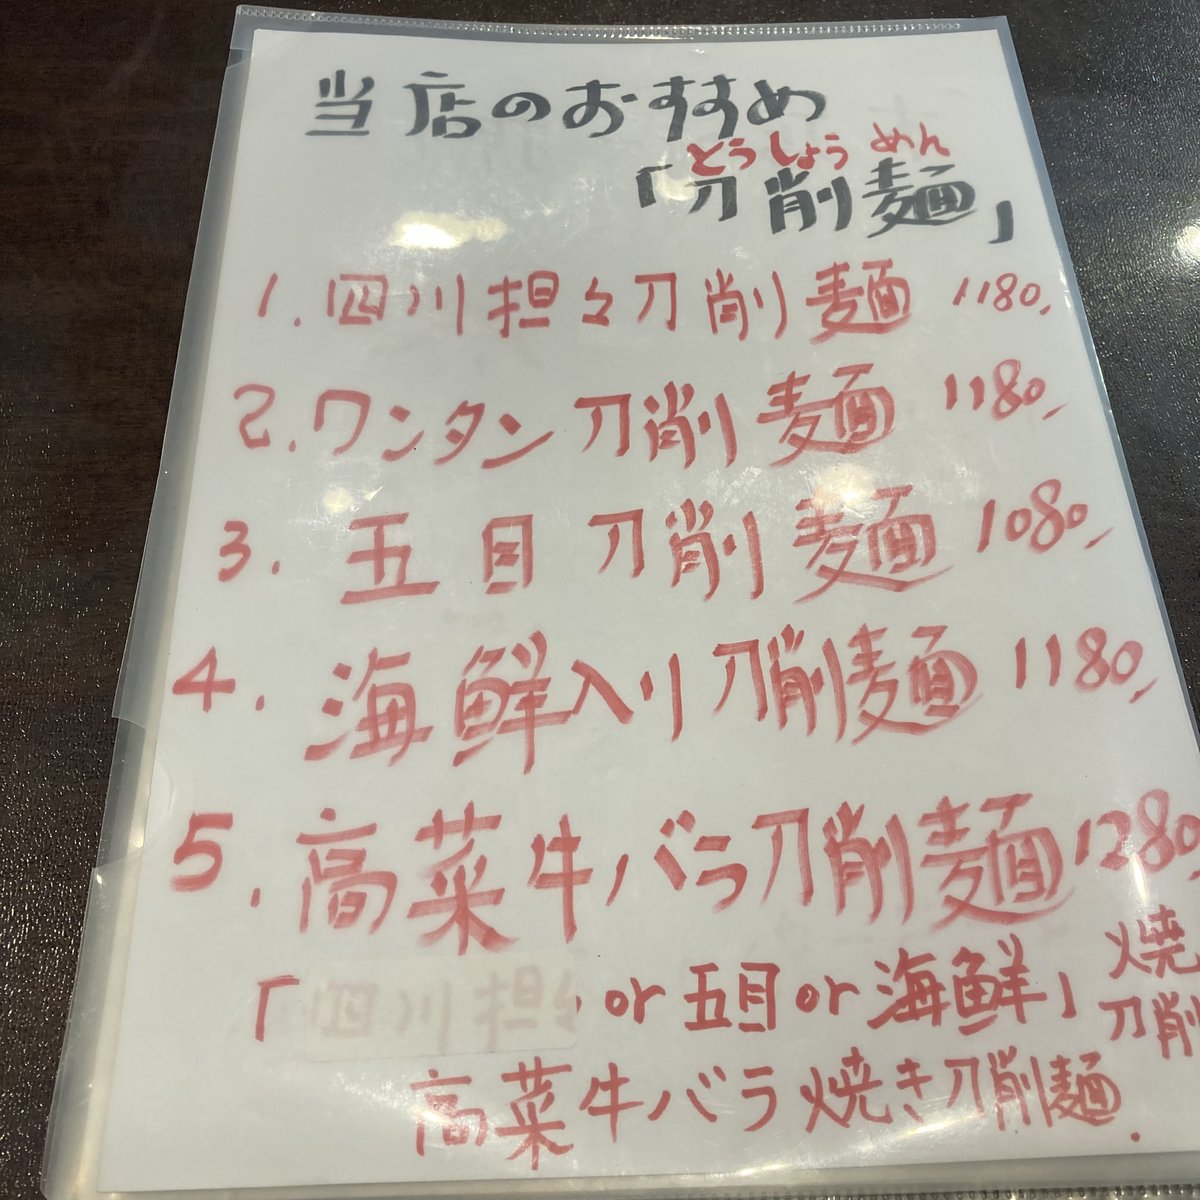 当店のおすすめ
とうしょうめん
「刀削麺」
1. 四川担々刀削麺 1180,
2. ワンタン刀削麺 1180,
3. 五目刀削麺 1080,
4. 海鮮入り刀削麺 1180,
5. 高菜牛バラ刀削麺 1280,
「四川担々 or 五目 or 海鮮」焼
刀削
高菜牛バラ焼き刀削麺.